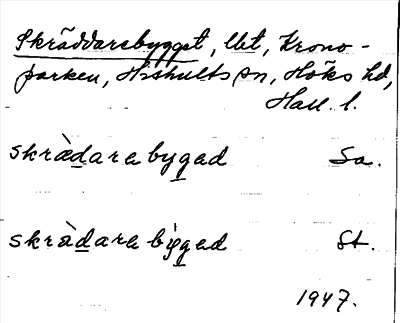 Skräddarebygget, lht, Krono-
parken, Hishults sn, Höks hd,
Hall. l.
skræ̀darebygad Sa.
skràdarebỳgad St.
1947.